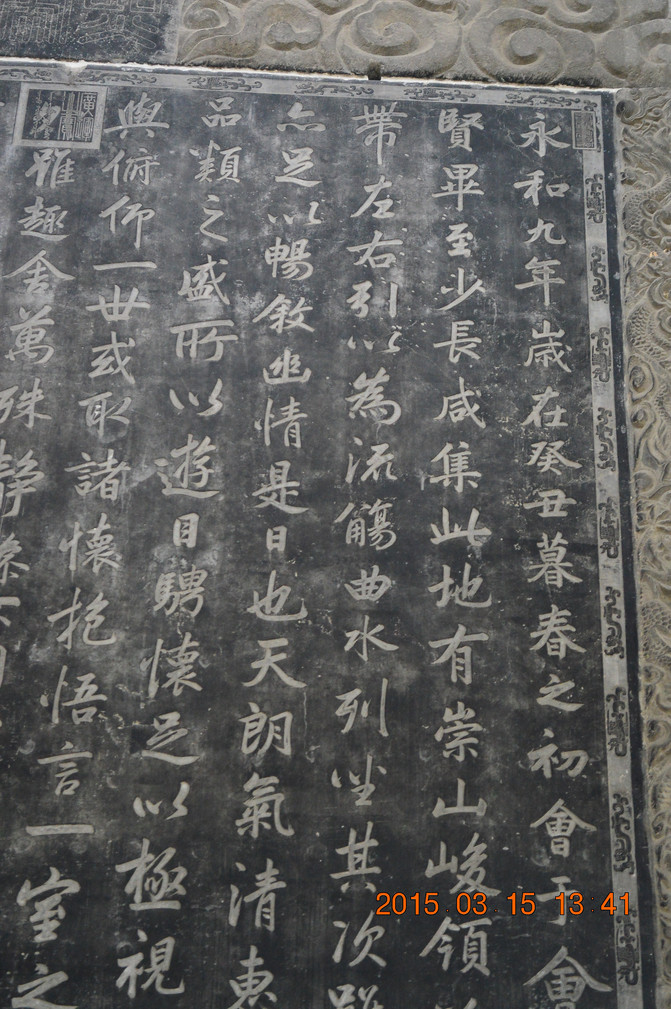 永和九年歲在癸丑暮春之初會于會
賢畢至少長咸集此地有崇山峻領
帶左右引以為流觴曲水列坐其次雖
亦足以暢敘幽情是日也天朗氣清惠
品類之盛所以遊目騁懷足以極視
與俯仰一世或取諸懷抱悟言一室之
雖趣舍萬殊靜躁不同
2015.03.15 13:41